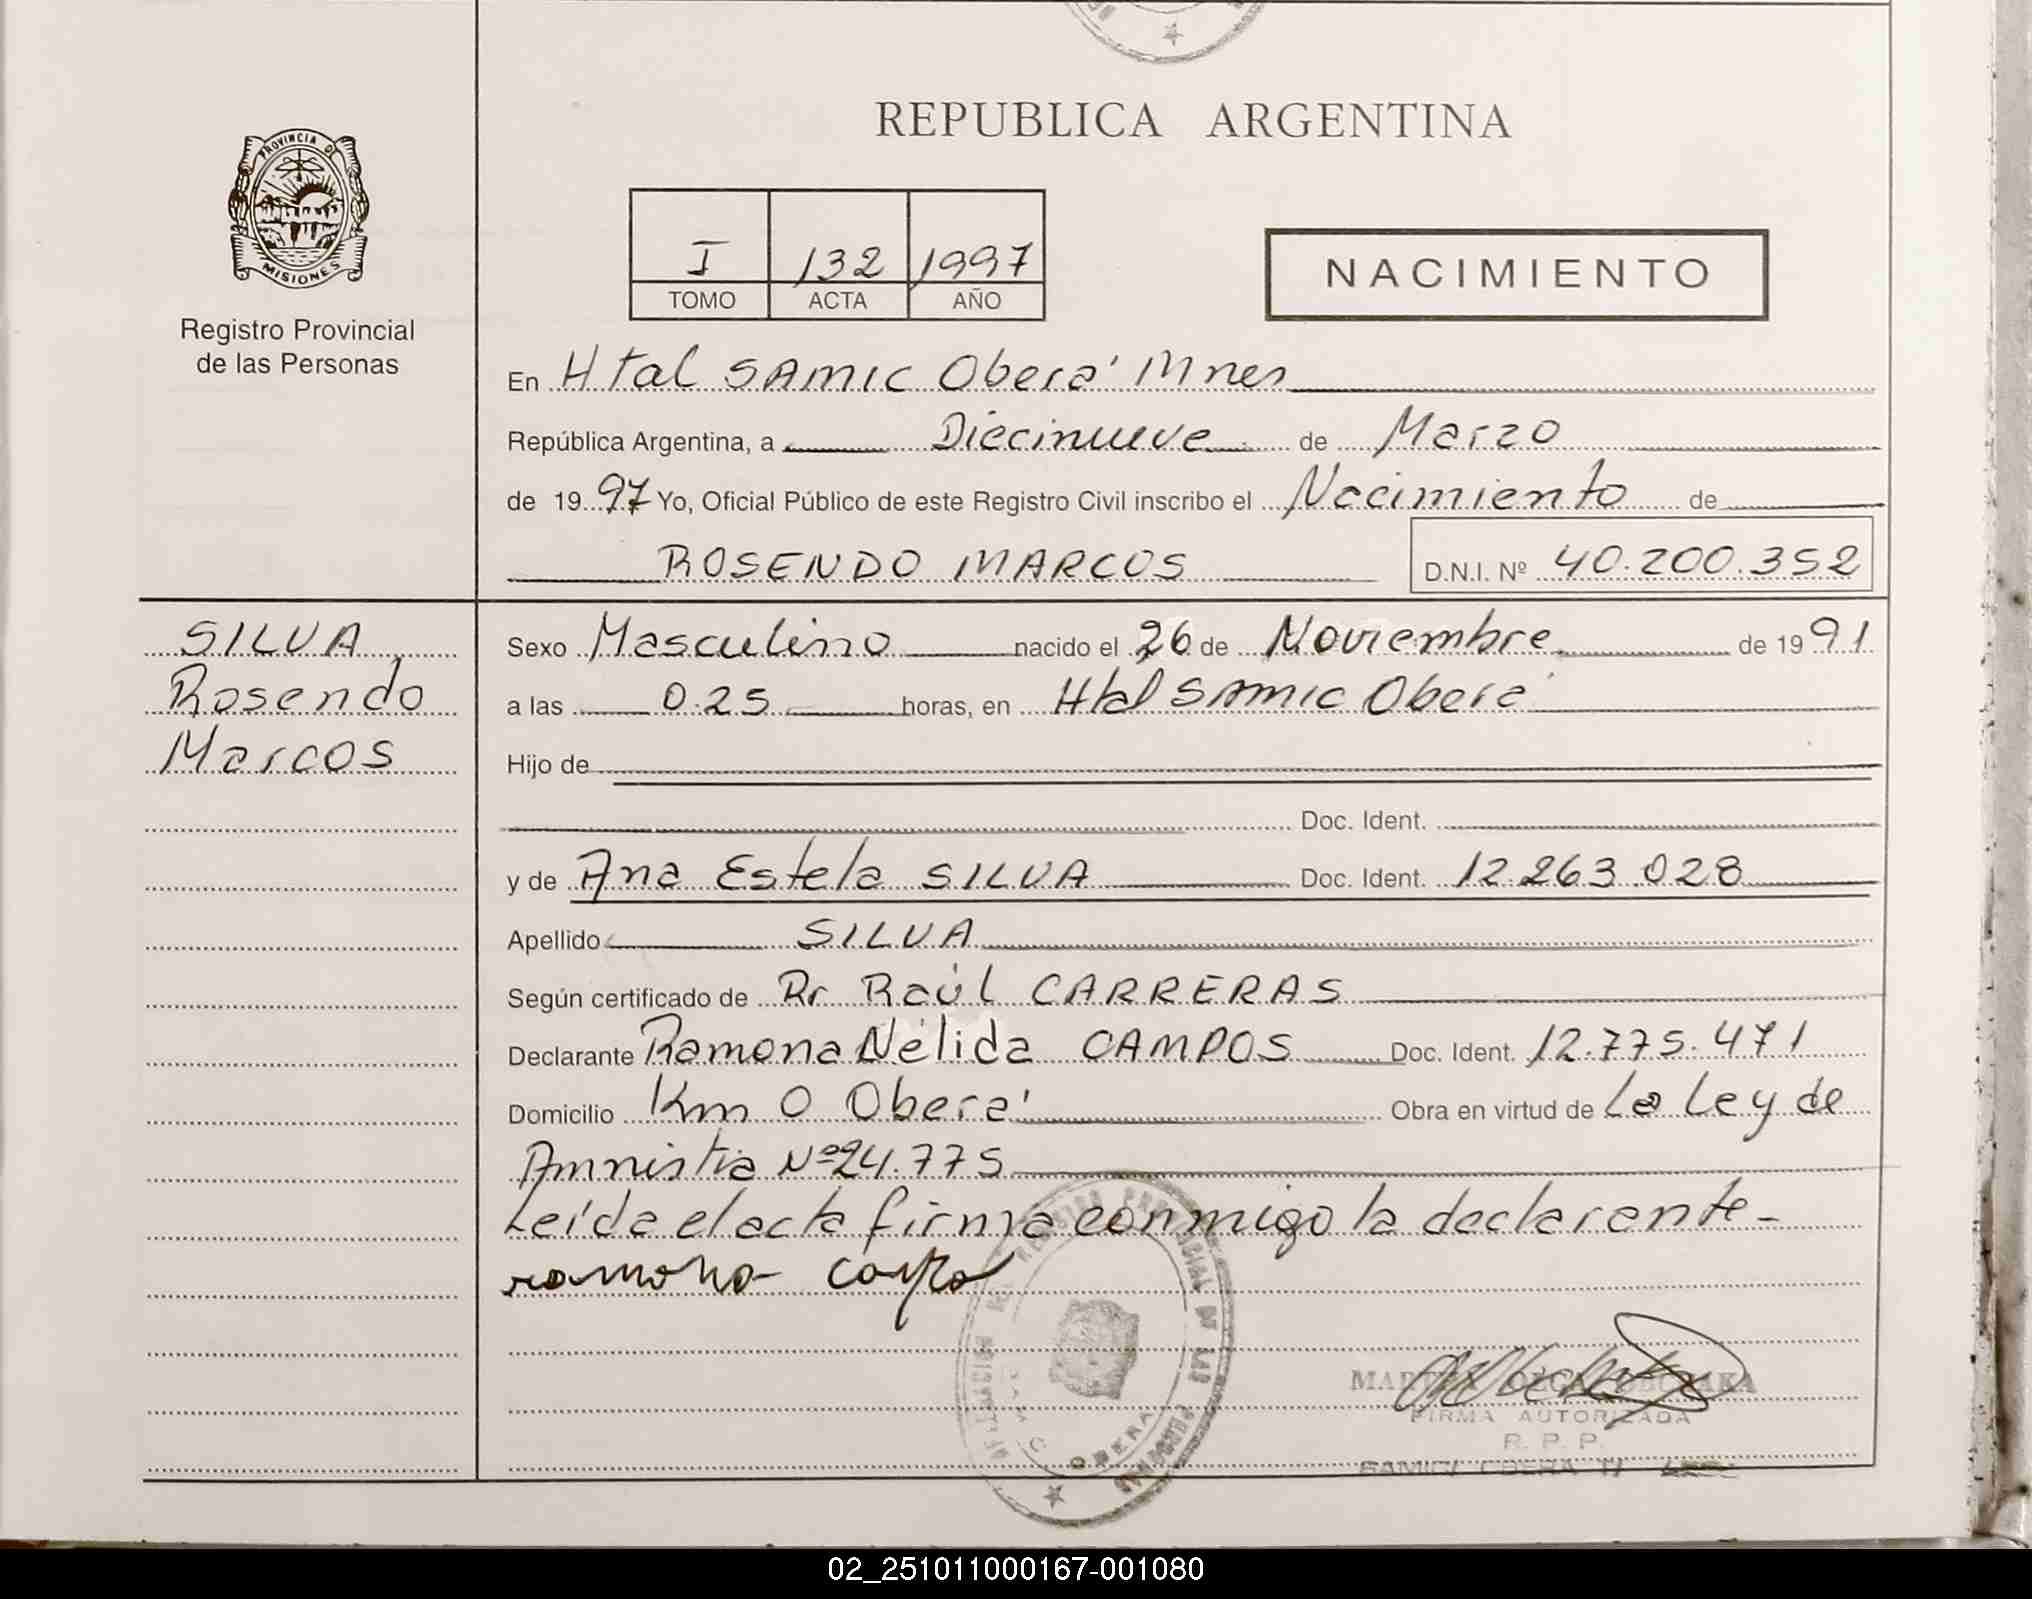 REPUBLICA ARGENTINA
PROVINCIA DE
MISIONES
Registro Provincial
de las Personas
I 132 1997
TOMO ACTA AÑO
NACIMIENTO
En Htal SAMIC Oberá Mnes
República Argentina, a Diecinueve de Marzo
de 1997 Yo, Oficial Público de este Registro Civil inscribo el Nacimiento de
ROSENDO MARCOS D.N.I. Nº 40.200.352
SILVA
Rosendo
Marcos
Sexo Masculino nacido el 26 de Noviembre de 1991
a las 0.25 horas, en Htal SAMIC Oberá
Hijo de
Doc. Ident.
y de Ana Estela SILVA Doc. Ident. 12.263.028
Apellido SILVA
Según certificado de Dr Raúl CARRERAS
Declarante Ramona Nélida CAMPOS Doc. Ident. 12.775.471
Domicilio Km 0 Oberá Obra en virtud de La Ley de
Amnistia Nº 24.775
Leída el acta firma conmigo la declarante-
ramona
REGISTRO PROVINCIAL DE LAS PERSONAS
OBERA
FIRMA AUTORIZADA
R. P. P.
02_251011000167-001080